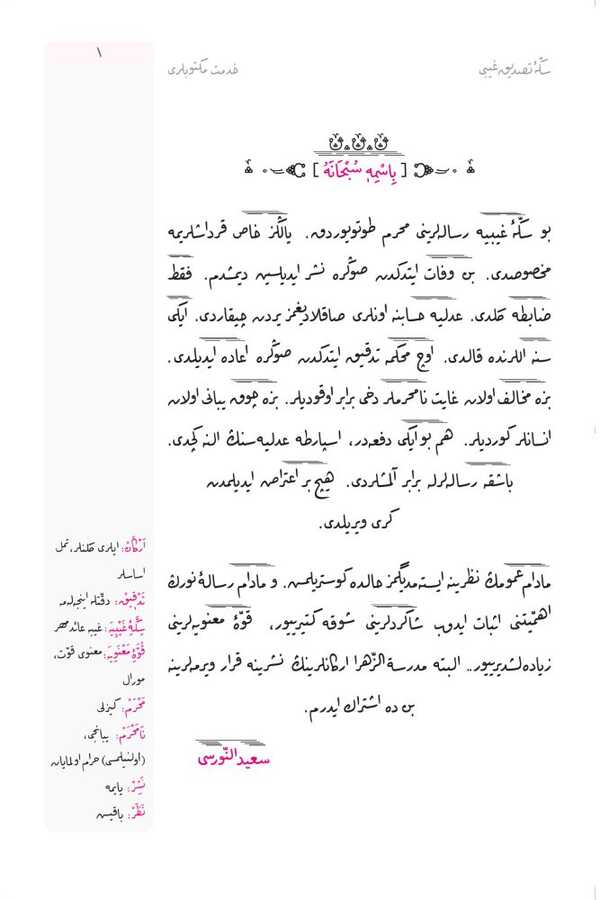 سكّهٔ تصديق غيبى
خدمت مكتوبلرى
١
[ بِاسْمِهٖ سُبْحَانَهُ ]
بو سكّهٔ غيبيه رساله‌لرينى محرم طوتويوردق. يالڭز خاص قرداشلريمه
مخصوصدى. بن وفات ايتدكدن صوڭره نشر ايديلسين ديمشدم. فقط
ضابطه كلدى. عدليه حسابنه اونلرى صاقلاديغمز يردن چيقاردى. ايكى
سنه اللرنده قالدى. اوچ محكمه تدقيق ايتدكدن صوڭره اعاده ايديلدى.
بزه مخالف اولان غايت نامحرملر دخى برابر اوقوديلر. بزه چوق يبانى اولان
انسانلر كورديلر. هم بو ايكى دفعه‌در، اسپارطه عدليه‌سنك النه كچدى.
باشقه رساله‌لرله برابر آلمشلردى. هيچ بر اعتراض ايديلمدن
كرى ويريلدى.
مادام عمومك نظرينه ايسته‌مديگمز حالده كوستريلمش. و مادام رسالهٔ نورك
اهمّيتنى اثبات ايدوب شاكردلرينى شوقه كتيرييور، قوّهٔ معنويه‌لرينى
زياده‌لشديرييور.. البته مدرسة الزّهرا اركانلرينڭ نشرينه قرار ويرمه‌لرينه
بن ده اشتراك ايدرم.
سعيد النّورسى
اَرْكَانْ: ايلرى كلنلر، تمل
اساسلر
تَدْقِيقْ: دقّتله اينجه‌له‌مه
سِكَّهٔ غَيْبِيَه: غيبه عائد مهر
قُوَّهٔ مَعْنَوِيَه: معنوى قوّت،
مورال
مَحْرَمْ: كيزلى
نَامَحْرَمْ: يبانجى،
(اولنيلمسى) حرام اولمايان
نَشِرْ: يايمه
نَظَرْ: باقيش